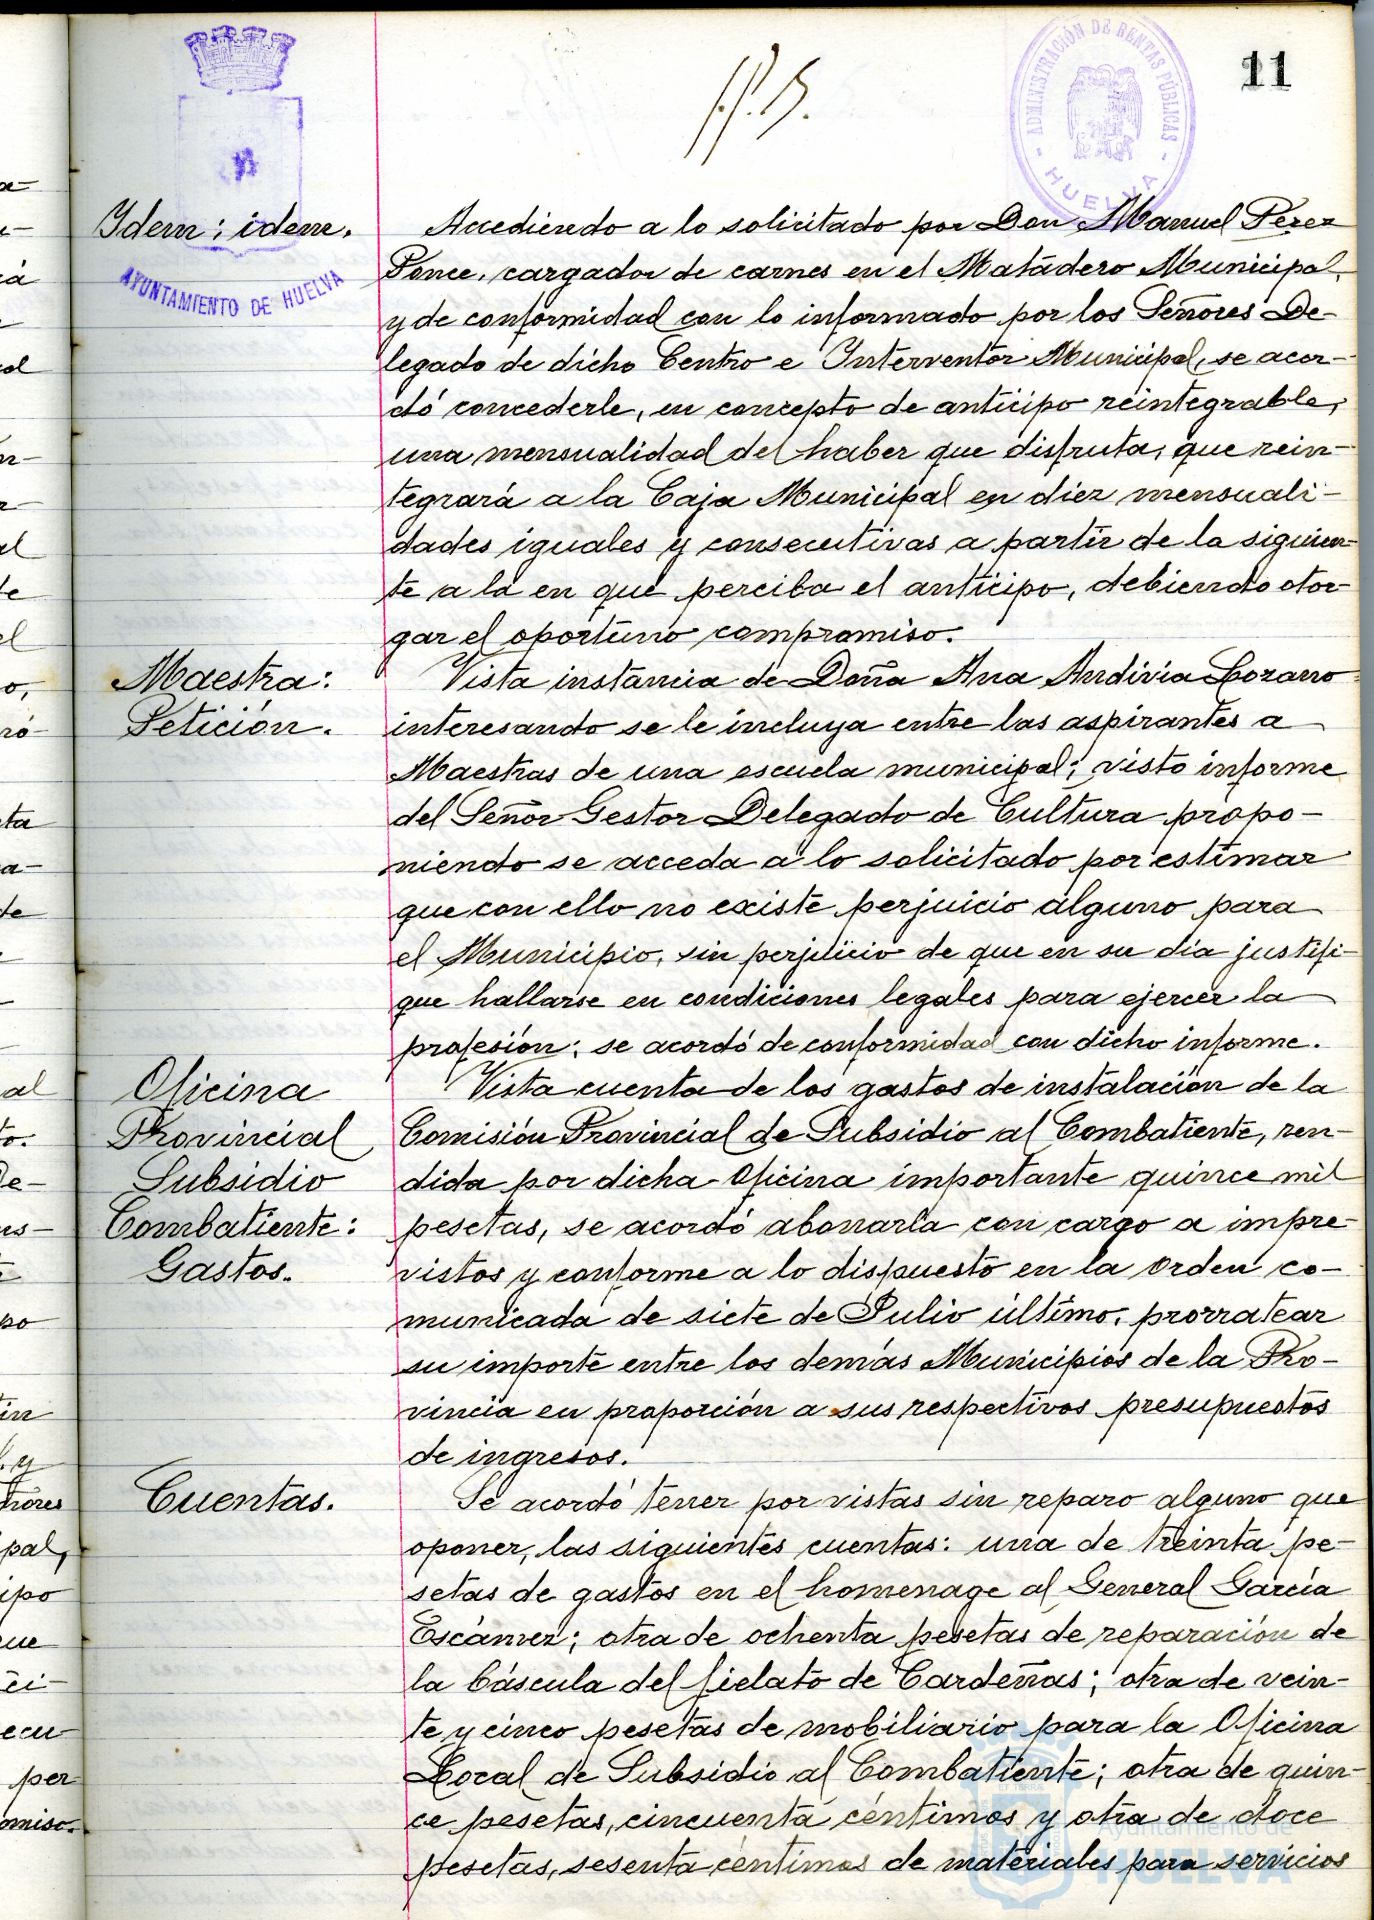 11
ADMINISTRACIÓN DE RENTAS PÚBLICAS
HUELVA
AYUNTAMIENTO DE HUELVA
Ydem; idem.
Accediendo a lo solicitado por Don Manuel Perez
Ponce, cargador de carnes en el Matadero Municipal,
y de conformidad con lo informado por los Señores De-
legado de dicho Centro e Interventor Municipal, se acor-
dó concederle, en concepto de anticipo reintegrable,
una mensualidad del haber que disfruta, que rein-
tegrará a la Caja Municipal en diez mensuali-
dades iguales y consecutivas a partir de la siguien-
te a la en que perciba el anticipo, debiendo otor-
gar el oportuno compromiso.
Maestra:
Petición.
Vista instancia de Doña Ana Andivia Lozano
interesando se le incluya entre las aspirantes a
Maestras de una escuela municipal; visto informe
del Señor Gestor Delegado de Cultura propo-
niendo se acceda a lo solicitado por estimar
que con ello no existe perjuicio alguno para
el Municipio, sin perjuicio de que en su día justifi-
que hallarse en condiciones legales para ejercer la
profesión; se acordó de conformidad con dicho informe.
Oficina
Provincial
Subsidio
Combatiente:
Gastos.
Vista cuenta de los gastos de instalación de la
Comisión Provincial de Subsidio al Combatiente, ren-
dida por dicha Oficina importante quince mil
pesetas, se acordó abonarla con cargo a impre-
vistos y conforme a lo dispuesto en la Orden co-
municada de siete de Julio último, prorratear
su importe entre los demás Municipios de la Pro-
vincia en proporción a sus respectivos presupuestos
de ingresos.
Cuentas.
Se acordó tener por vistas sin reparo alguno que
oponer, las siguientes cuentas: una de treinta pe-
setas de gastos en el homenage al General García
Escámez; otra de ochenta pesetas de reparación de
la báscula del fielato de Cardeñas; otra de vein-
te y cinco pesetas de mobiliario para la Oficina
Local de Subsidio al Combatiente; otra de quin-
ce pesetas, cincuenta céntimos y otra de doce
pesetas, sesenta céntimos de materiales para servicios
Ayuntamiento de
HUELVA